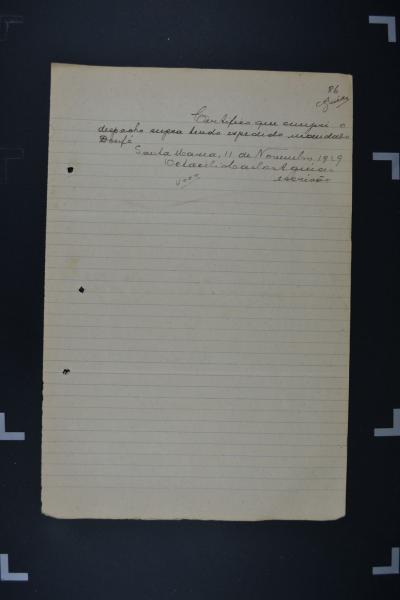 86
Certifico que cumpri o
despacho supra tendo expedido mandado
Doufé
Santa Maria, 11 de Novembro, 1929
escrivão